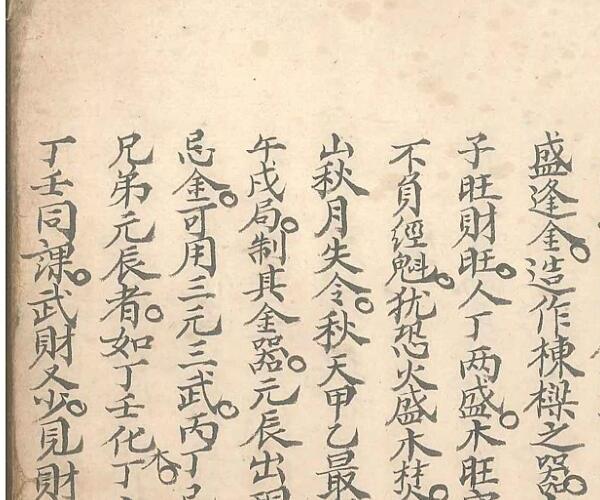 盛逢金。造作棟樑之器。
子旺財旺。人丁两盛。木旺
不負經魁。犹恐火盛木
山秋月失令。秋天甲乙最
午戌局。制其金器。元辰出
忌金。可用三元三武。丙丁
兄弟元辰者。如丁壬化木。丁
丁壬同課。武財又少。見財